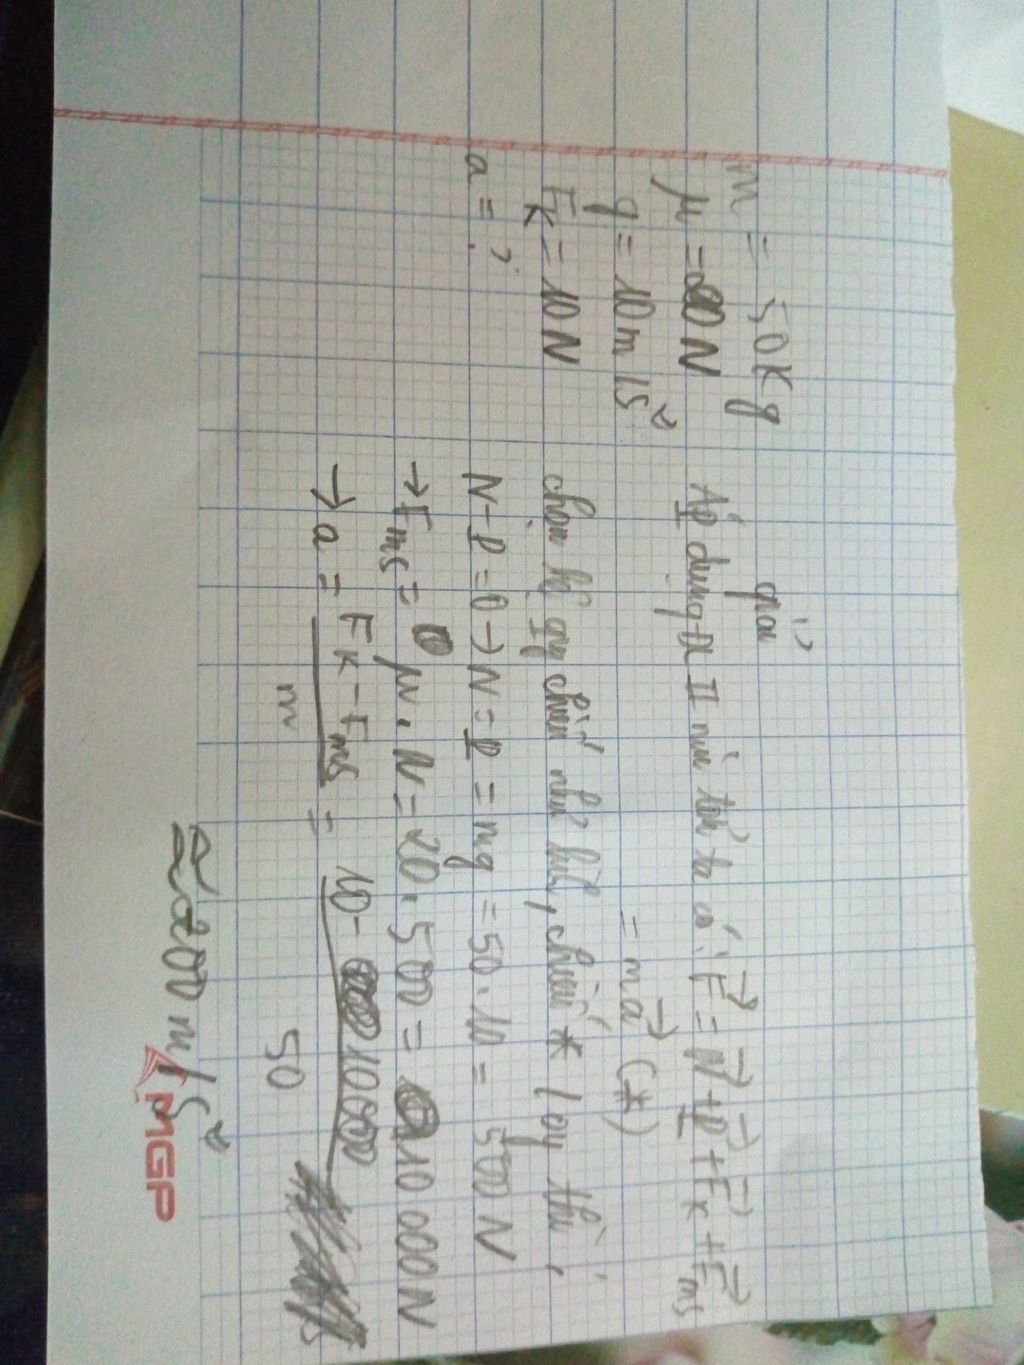 m = 50Kg
μ = 20N
g = 10m/s²
Fk = 10N
a = ?
giải
Áp dụng ĐL II niu tơn ta có: F = N + P + Fk + Fms
= ma (*)
chọn hệ quy chiếu như hình, chiếu * / oy thì,
N-P=0→N=P=mg=50.10=500N
→Fms= μ.N=20.500=10000N
→a= Fk-Fms / m = 10-10000 / 50
≈200m/s²
MGP